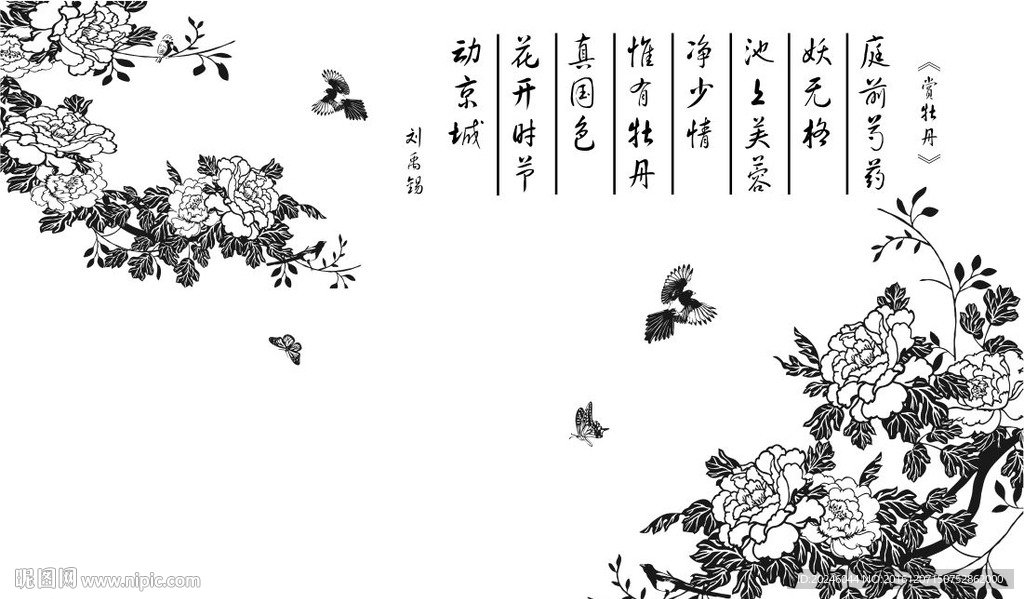 《赏牡丹》
庭前芍药
妖无格
池上芙蓉
净少情
惟有牡丹
真国色
花开时节
动京城
刘禹锡
昵图网 www.nipic.com
ID:20246044 NO:20161207150752862000